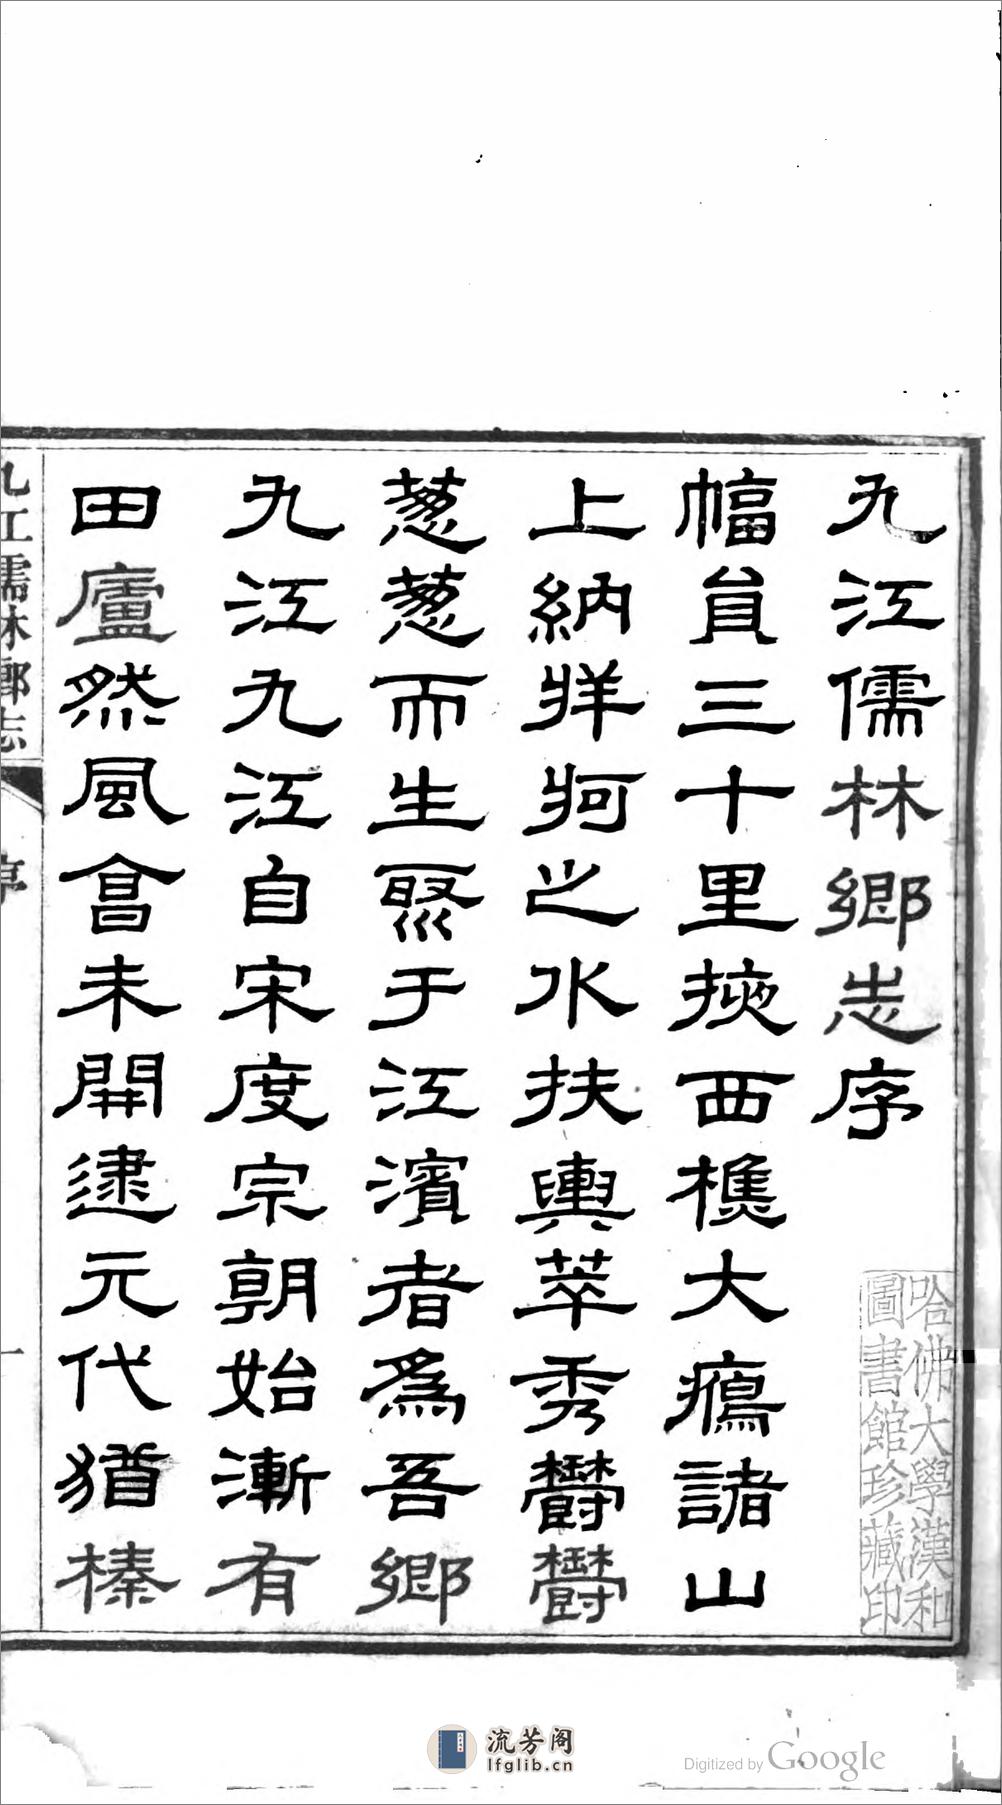 九江儒林鄉志序
幅員三十里挾西樵大癘諸山
上納牂牁之水扶輿萃秀鬱鬱
葱葱而生聚于江濱者為吾鄉
九江九江自宋度宗朝始漸有
田廬然風會未開逮元代猶榛
九江儒林鄉志
序
一
哈佛大學漢和
圖書館珍藏印
流芳阁
lfglib.cn
Digitized by Google